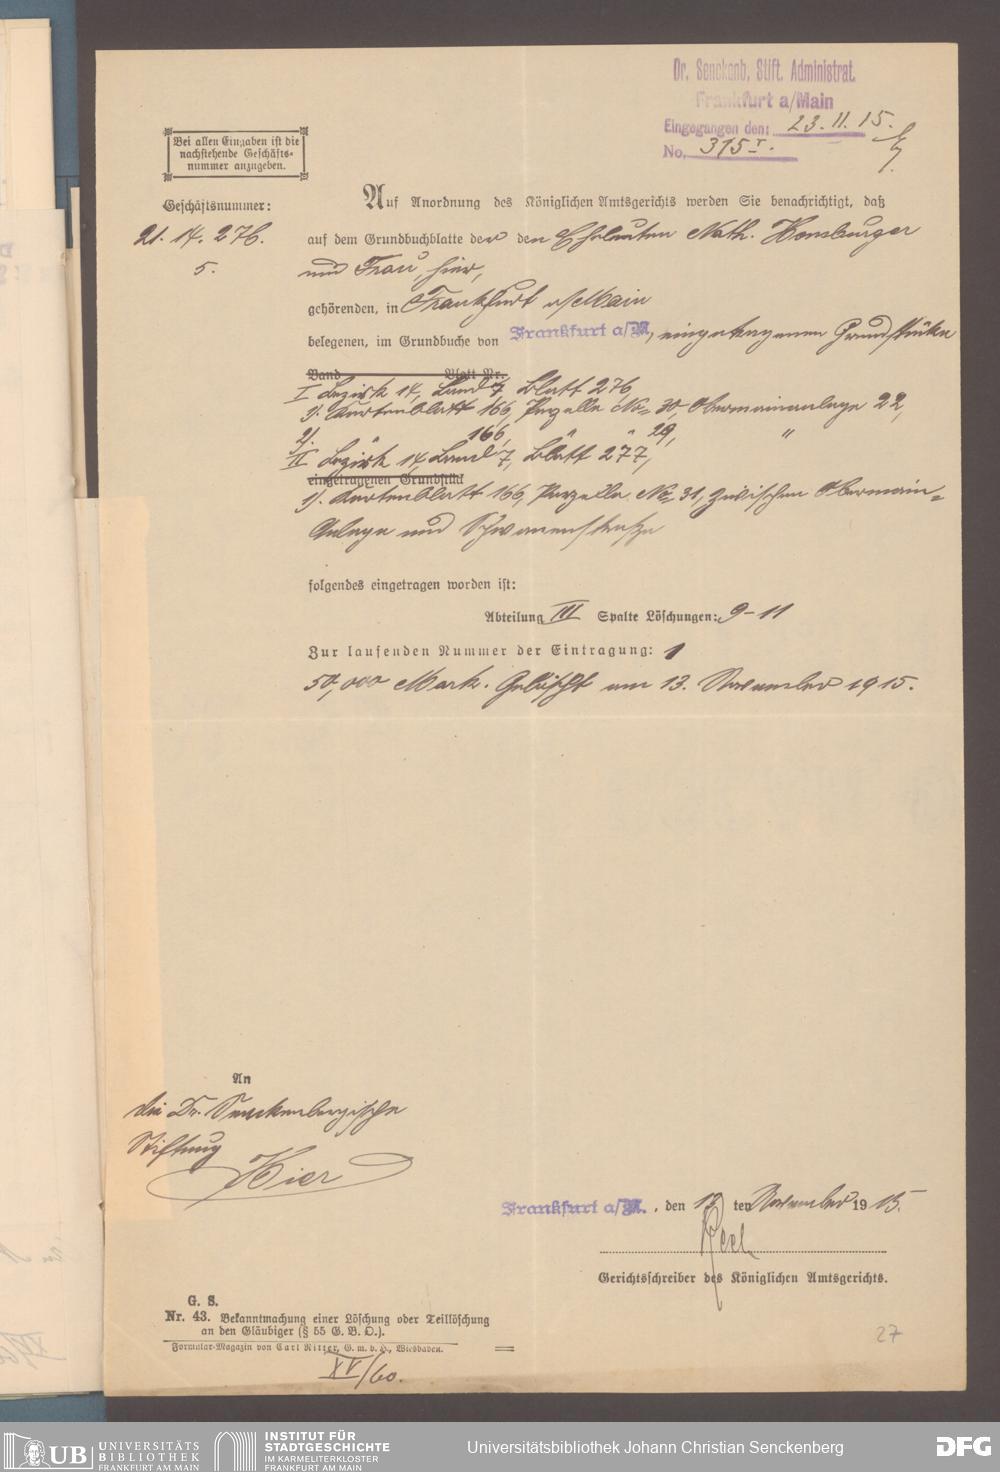 Dr. Senckenb. Stift. Administrat.
Frankfurt a/Main
Eingegangen den: 23. 11. 15.
No. 315 I.
Bei allen Eingaben ist die
nachstehende Geschäfts-
nummer anzugeben.
Geschäftsnummer:
21. 14. 276.
5.
Auf Anordnung des Königlichen Amtsgerichts werden Sie benachrichtigt, daß
auf dem Grundbuchblatte der den Eheleuten Nath. Homburger
und Frau, hier,
gehörenden, in Frankfurt a/Main
belegenen, im Grundbuche von Frankfurt a/M, eingetragenen Grundstücke
Band Blatt Nr.
I Bezirk 14, Band 7 Blatt 276
1). Kartenblatt 166, Parzelle No 30, Obermainanlage 22,
2). " 166, " " 29, "
II Bezirk 14, Band 7, Blatt 277,
eingetragenen Grundstück
1). Kartenblatt 166, Parzelle No 31, zwischen Obermain-
Anlage und Schwanenstraße
folgendes eingetragen worden ist:
Abteilung III Spalte Löschungen: 9-11
Zur laufenden Nummer der Eintragung: 1
50,000 Mark. Gelöscht am 13. November 1915.
An
die Dr. Senckenbergische
Stiftung
Hier
Frankfurt a/M., den 13 ten November 1915.
Gerichtsschreiber des Königlichen Amtsgerichts.
G. S.
Nr. 43. Bekanntmachung einer Löschung oder Teillöschung
an den Gläubiger (§ 55 G. B. O.).
Formular-Magazin von Carl Ritter, G. m. b. H., Wiesbaden.
XV/60.
27
UB UNIVERSITÄTS
BIBLIOTHEK
FRANKFURT AM MAIN
INSTITUT FÜR
STADTGESCHICHTE
IM KARMELITERKLOSTER
FRANKFURT AM MAIN
Universitätsbibliothek Johann Christian Senckenberg
DFG